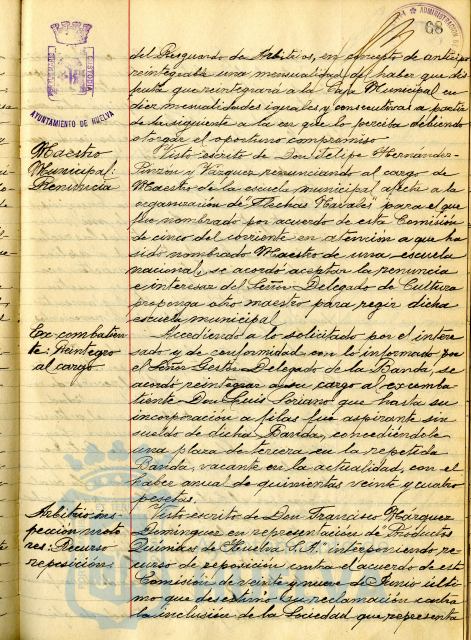 68
AYUNTAMIENTO DE HUELVA
del Resguardo de Arbitrios, en concepto de anticipo
reintegrable una mensualidad de haber que dis
fruta que reintegrará a la Caja Municipal en
diez mensualidades iguales y consecutivas a partir
de la siguiente a la en que lo perciba debiendo
otorgar el oportuno compromiso.
Maestro
Municipal:
Renuncia
Visto escrito de Don Felipe Hernández-
Pinzón y Vázquez renunciando al cargo de
Maestro de la escuela municipal afecta a la
organización de "Flechas Navales" para el que
fue nombrado por acuerdo de esta Comisión
de cinco del corriente en atención a que ha
sido nombrado Maestro de una escuela
nacional, se acordó aceptar la renuncia
e interesar del Señor Delegado de Cultura
proponga otro maestro para regir dicha
escuela municipal.
Ex-combatien
te: Reintegro
al cargo
Accediendo a lo solicitado por el intere
sado y de conformidad con lo informado por
el Señor Gestor Delegado de la Banda, se
acordó reintegrar a su cargo al excomba
tiente Don Luis Soriano que hasta su
incorporación a filas fue aspirante sin
sueldo de dicha Banda, concediéndole
una plaza de tercera en la repetida
Banda, vacante en la actualidad, con el
haber anual de quinientas veinte y cuatro
pesetas.
Arbitrio ins
pección moto
res: Recurso
reposición
Visto escrito de Don Francisco Márquez
Domínguez en representación de "Productos
Químicos de Huelva" interponiendo re
curso de reposición contra el acuerdo de esta
Comisión de veinte y nueve de Junio últi
mo que desestimó su reclamación contra
la inclusión de la Sociedad que representa